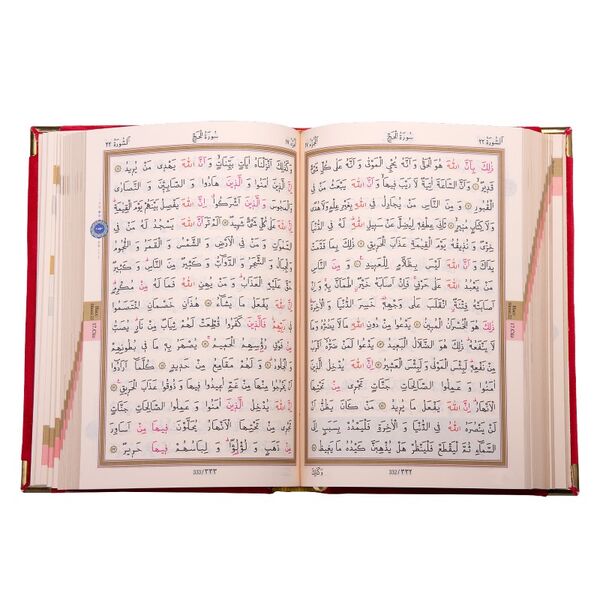 اَلسُّورَةُ ٢٢ سُورَةُ الْحَجِّ اَلْجُزْءُ ١٧
ذٰلِكَ بِأَنَّ اللّٰهَ هُوَ الْحَقُّ وَأَنَّهُ يُحْيِ الْمَوْتٰى وَأَنَّهُ عَلٰى كُلِّ شَيْءٍ
قَدِيرٌ وَأَنَّ السَّاعَةَ اٰتِيَةٌ لَا رَيْبَ فِيهَا وَأَنَّ اللّٰهَ يَبْعَثُ مَنْ فِي
الْقُبُورِ وَمِنَ النَّاسِ مَنْ يُجَادِلُ فِي اللّٰهِ بِغَيْرِ عِلْمٍ وَلَا هُدًى
وَلَا كِتَابٍ مُنِيرٍ ثَانِيَ عِطْفِهِ لِيُضِلَّ عَنْ سَبِيلِ اللّٰهِ لَهُ فِي الدُّنْيَا
خِزْيٌ وَنُذِيقُهُ يَوْمَ الْقِيٰمَةِ عَذَابَ الْحَرِيقِ ذٰلِكَ بِمَا قَدَّمَتْ
يَدَاكَ وَأَنَّ اللّٰهَ لَيْسَ بِظَلَّامٍ لِلْعَبِيدِ وَمِنَ النَّاسِ
مَنْ يَعْبُدُ اللّٰهَ عَلٰى حَرْفٍ فَإِنْ أَصَابَهُ خَيْرٌ اطْمَأَنَّ بِهِ وَإِنْ
أَصَابَتْهُ فِتْنَةٌ انْقَلَبَ عَلٰى وَجْهِهِ خَسِرَ الدُّنْيَا وَالْاٰخِرَةَ
ذٰلِكَ هُوَ الْخُسْرَانُ الْمُبِينُ يَدْعُوا مِنْ دُونِ اللّٰهِ مَا لَا يَضُرُّهُ وَمَا
لَا يَنْفَعُهُ ذٰلِكَ هُوَ الضَّلَالُ الْبَعِيدُ يَدْعُوا لَمَنْ ضَرُّهُ أَقْرَبُ
مِنْ نَفْعِهِ لَبِئْسَ الْمَوْلٰى وَلَبِئْسَ الْعَشِيرُ إِنَّ اللّٰهَ يُدْخِلُ
الَّذِينَ اٰمَنُوا وَعَمِلُوا الصَّالِحَاتِ جَنَّاتٍ تَجْرِي مِنْ تَحْتِهَا
الْأَنْهَارُ إِنَّ اللّٰهَ يَفْعَلُ مَا يُرِيدُ مَنْ كَانَ يَظُنُّ أَنْ لَنْ
يَنْصُرَهُ اللّٰهُ فِي الدُّنْيَا وَالْاٰخِرَةِ فَلْيَمْدُدْ بِسَبَبٍ إِلَى
السَّمَاءِ ثُمَّ لْيَقْطَعْ فَلْيَنْظُرْ هَلْ يُذْهِبَنَّ كَيْدُهُ مَا يَغِيظُ
332/٣٣٢ وَكَذٰلِكَ
اَلسُّورَةُ ٢٢ سُورَةُ الْحَجِّ
وَكَذٰلِكَ أَنْزَلْنَاهُ اٰيَاتٍ بَيِّنَاتٍ وَأَنَّ اللّٰهَ يَهْدِي مَنْ يُرِيدُ
إِنَّ الَّذِينَ اٰمَنُوا وَالَّذِينَ هَادُوا وَالصَّابِئِينَ وَالنَّصَارٰى
وَالْمَجُوسَ وَالَّذِينَ أَشْرَكُوا إِنَّ اللّٰهَ يَفْصِلُ بَيْنَهُمْ يَوْمَ الْقِيٰمَةِ
إِنَّ اللّٰهَ عَلٰى كُلِّ شَيْءٍ شَهِيدٌ أَلَمْ تَرَ أَنَّ اللّٰهَ يَسْجُدُ لَهُ مَنْ فِي
السَّمٰوَاتِ وَمَنْ فِي الْأَرْضِ وَالشَّمْسُ وَالْقَمَرُ وَالنُّجُومُ
وَالْجِبَالُ وَالشَّجَرُ وَالدَّوَابُّ وَكَثِيرٌ مِنَ النَّاسِ وَكَثِيرٌ
حَقَّ عَلَيْهِ الْعَذَابُ وَمَنْ يُهِنِ اللّٰهُ فَمَا لَهُ مِنْ مُكْرِمٍ
إِنَّ اللّٰهَ يَفْعَلُ مَا يَشَاءُ هٰذَانِ خَصْمَانِ اخْتَصَمُوا
فِي رَبِّهِمْ فَالَّذِينَ كَفَرُوا قُطِّعَتْ لَهُمْ ثِيَابٌ مِنْ نَارٍ يُصَبُّ
مِنْ فَوْقِ رُؤُسِهِمُ الْحَمِيمُ يُصْهَرُ بِهِ مَا فِي بُطُونِهِمْ
وَالْجُلُودُ وَلَهُمْ مَقَامِعُ مِنْ حَدِيدٍ كُلَّمَا أَرَادُوا
أَنْ يَخْرُجُوا مِنْهَا مِنْ غَمٍّ أُعِيدُوا فِيهَا وَذُوقُوا عَذَابَ الْحَرِيقِ
إِنَّ اللّٰهَ يُدْخِلُ الَّذِينَ اٰمَنُوا وَعَمِلُوا الصَّالِحَاتِ جَنَّاتٍ
تَجْرِي مِنْ تَحْتِهَا الْأَنْهَارُ يُحَلَّوْنَ فِيهَا مِنْ أَسَاوِرَ
مِنْ ذَهَبٍ وَلُؤْلُؤًا وَلِبَاسُهُمْ فِيهَا حَرِيرٌ
333/٣٣٣